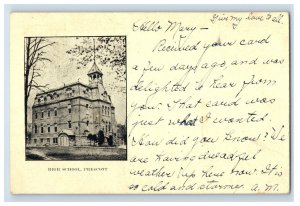 Hello Mary- Give my love to all.
Recieved your card
a few days ago, and was
delighted to hear from
you. That card was
just what I wanted.
How did you know? We
are having dreadful
weather up here now. It is
so cold and stormy. A.M.
HIGH SCHOOL, PRESCOTT